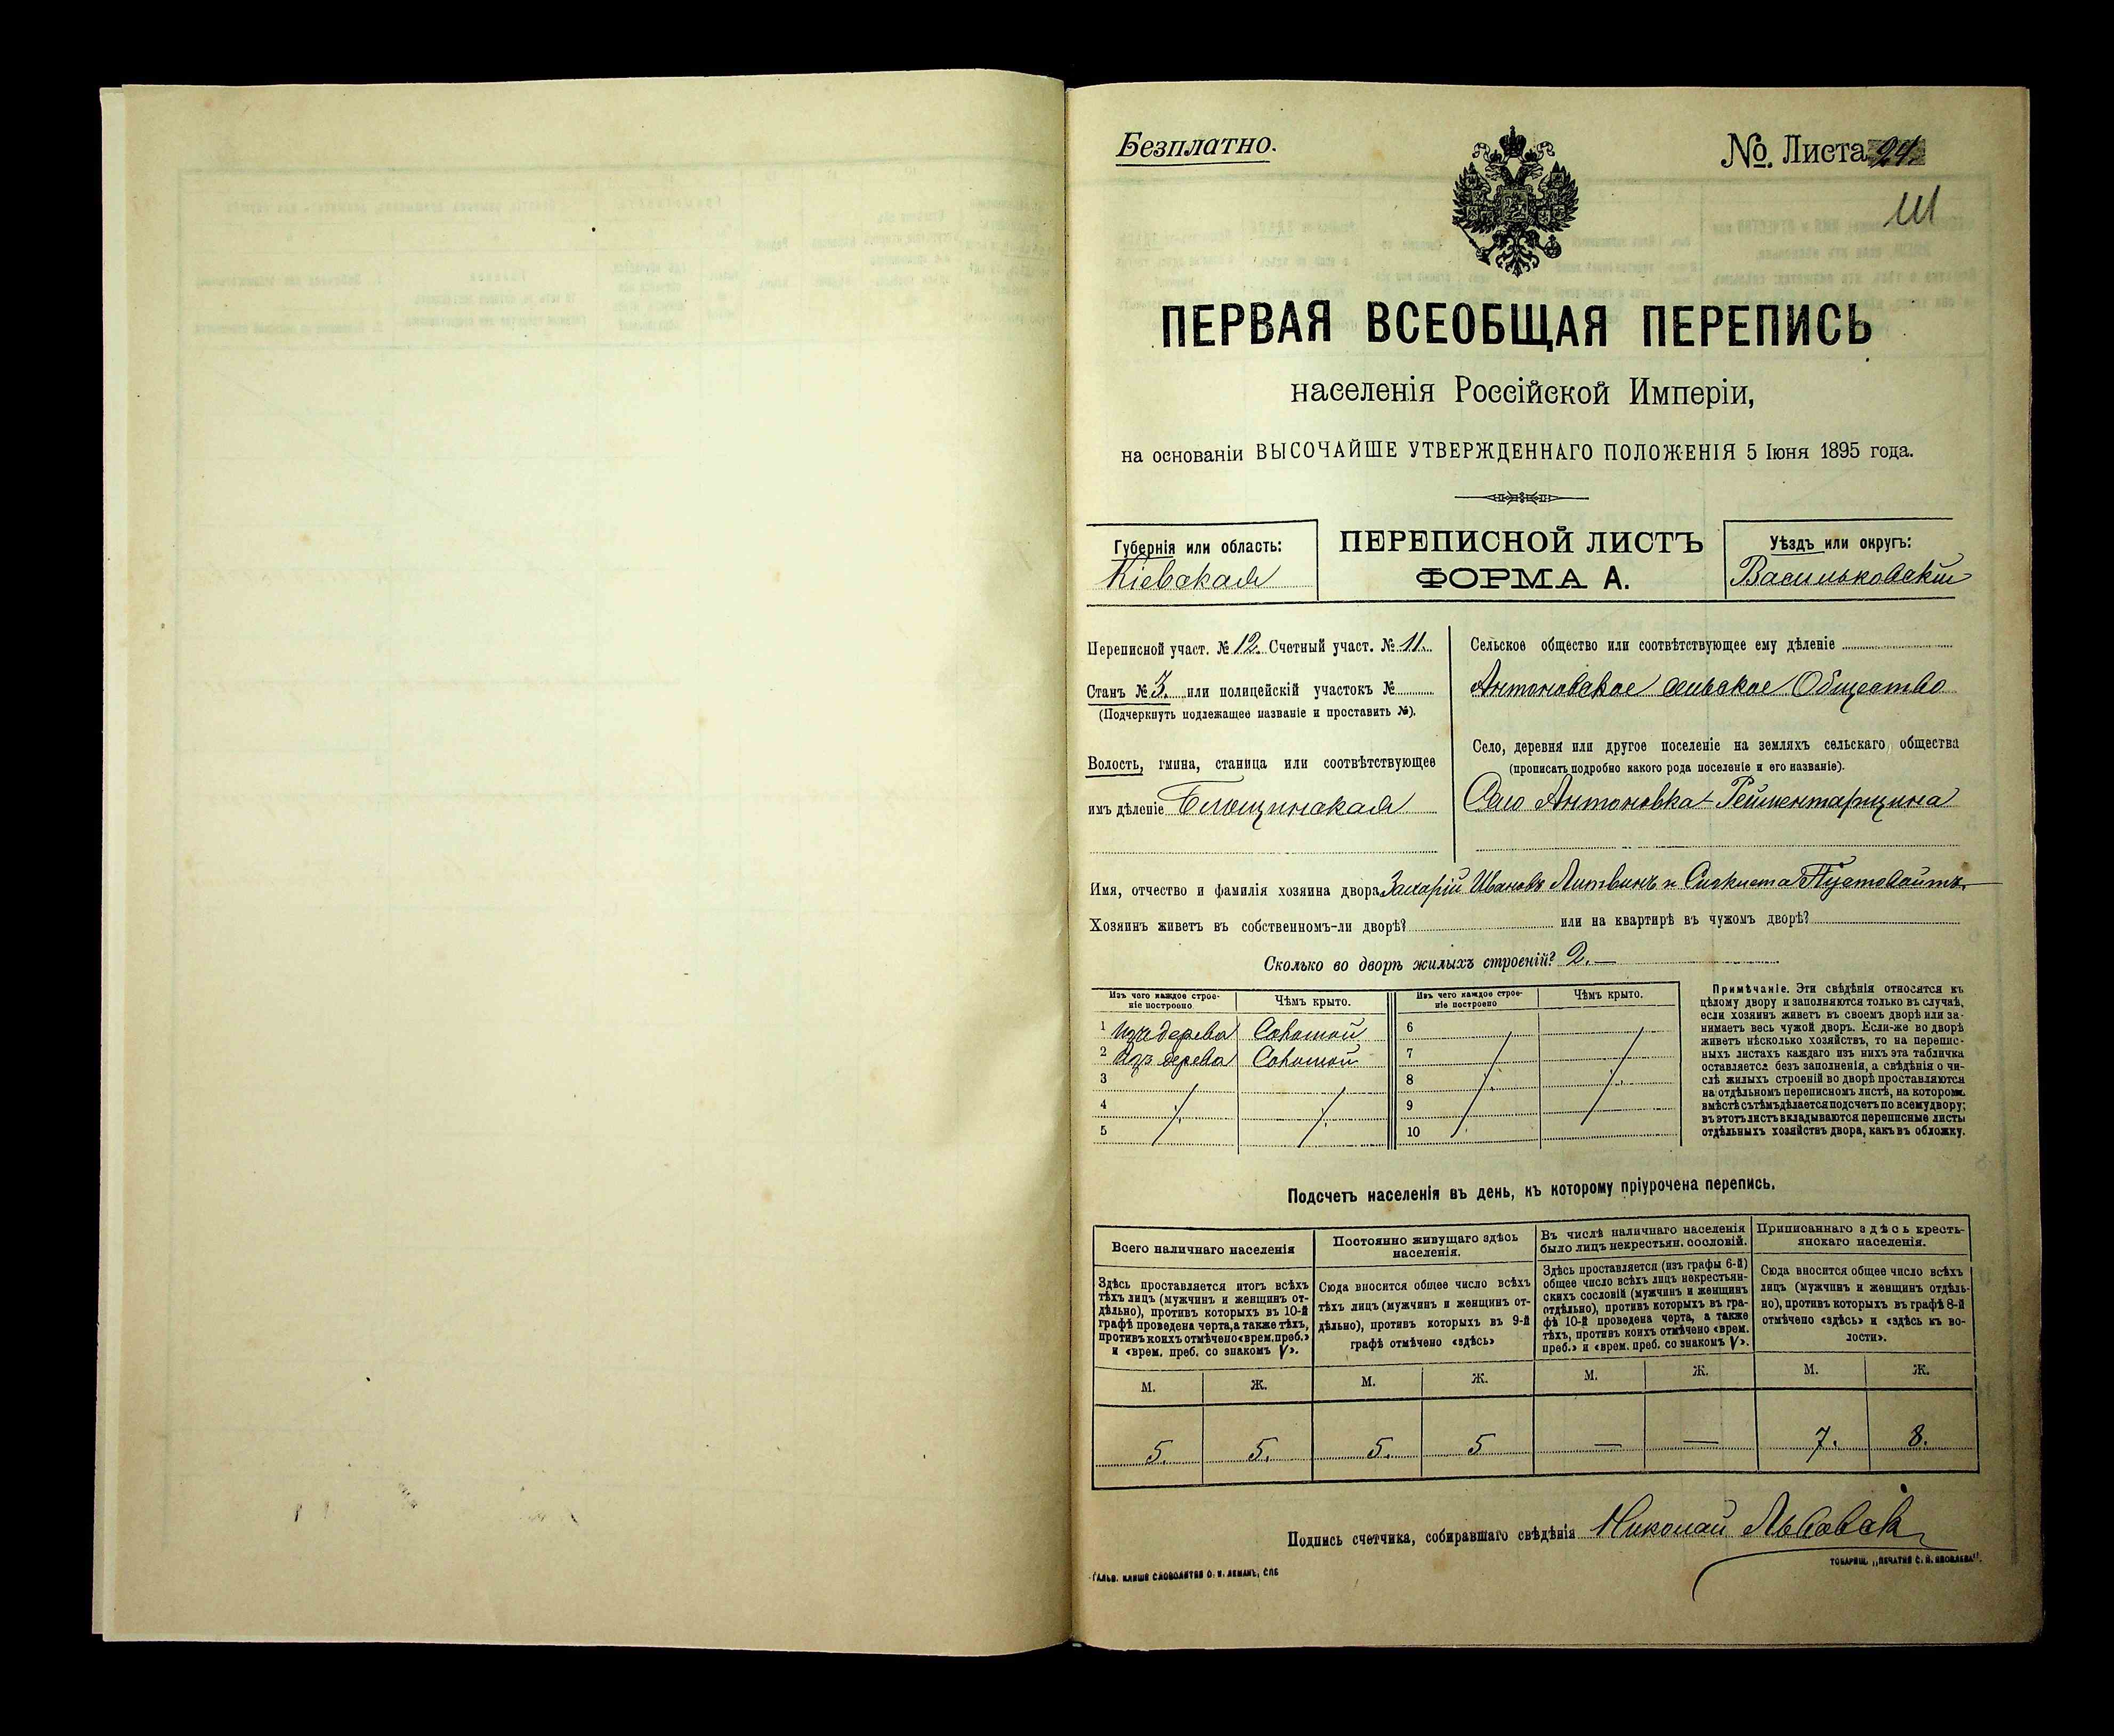 Безплатно.
№. Листа 24.
Ш
ПЕРВАЯ ВСЕОБЩАЯ ПЕРЕПИСЬ
населенія Россійской Имперіи,
на основаніи ВЫСОЧАЙШЕ УТВЕРЖДЕННАГО ПОЛОЖЕНІЯ 5 Іюня 1895 года.
Губернія или область:
Кіевская
ПЕРЕПИСНОЙ ЛИСТЪ
ФОРМА А.
Уѣздъ или округъ:
Васильковскій
Переписной участ. № 12. Счетный участ. № 11.
Станъ № 3. или полицейскій участокъ №
(Подчеркнуть подлежащее названіе и проставить №).
Волость, гмина, станица или соотвѣтствующее
имъ дѣленіе
Сельское общество или соотвѣтствующее ему дѣленіе
Антоновское сельское Общество
Село, деревня или другое поселеніе на земляхъ сельскаго общества
(прописать подробно какого рода поселеніе и его названіе).
Село Антоновка-Рейментарщина
Имя, отчество и фамилія хозяина двора Захарій Ивановъ Литвинъ и Пустовойтъ
Хозяинъ живетъ въ собственномъ-ли дворѣ? или на квартирѣ въ чужомъ дворѣ?
Сколько во дворѣ жилыхъ строеній? 2. —
Изъ чего каждое строе-
ніе построено
Чѣмъ крыто.
Изъ чего каждое строе-
ніе построено
Чѣмъ крыто.
1 Изъ дерева Соломой 6
2 Изъ дерева Соломой 7
3 8
4 9
5 10
Примѣчаніе. Эти свѣдѣнія относятся къ
цѣлому двору и заполняются только въ случаѣ,
если хозяинъ живетъ въ своемъ дворѣ или за-
нимаетъ весь чужой дворъ. Если-же во дворѣ
живетъ нѣсколько хозяйствъ, то на перепис-
ныхъ листахъ каждаго изъ нихъ эта табличка
оставляется безъ заполненія, а свѣдѣнія о чи-
слѣ жилыхъ строеній во дворѣ проставляются
на отдѣльномъ переписномъ листѣ, на которомъ
вмѣстѣ съ тѣмъ дѣлается подсчетъ по всему двору;
въ этотъ листъ вкладываются переписные листы
отдѣльныхъ хозяйствъ двора, какъ въ обложку.
Подсчетъ населенія въ день, къ которому пріурочена перепись.
Всего наличнаго населенія
Здѣсь проставляется итогъ всѣхъ
тѣхъ лицъ (мужчинъ и женщинъ от-
дѣльно), противъ которыхъ въ 10-й
графѣ проведена черта, а также тѣхъ,
противъ коихъ отмѣчено «врем. преб.»
и «врем. преб. со знакомъ V».
Постоянно живущаго здѣсь
населенія.
Сюда вносится общее число всѣхъ
тѣхъ лицъ (мужчинъ и женщинъ от-
дѣльно), противъ которыхъ въ 9-й
графѣ отмѣчено «здѣсь»
Въ числѣ наличнаго населенія
было лицъ некрестьян. сословій.
Здѣсь проставляется (изъ графы 6-й)
общее число всѣхъ лицъ некрестьян-
скихъ сословій (мужчинъ и женщинъ
отдѣльно), противъ которыхъ въ гра-
фѣ 10-й проведена черта, а также
тѣхъ, противъ коихъ отмѣчено «врем.
преб.» и «врем. преб. со знакомъ V».
Приписаннаго здѣсь кресть-
янскаго населенія.
Сюда вносится общее число всѣхъ
лицъ (мужчинъ и женщинъ отдѣль-
но), противъ которыхъ въ графѣ 8-й
отмѣчено «здѣсь» и «здѣсь къ во-
лости».
М. Ж. М. Ж. М. Ж. М. Ж.
5. 5. 5. 5 — — 7. 8.
Подпись счетчика, собиравшаго свѣдѣнія Николай
ГАЛЬВ. КЛИШЕ СЛОВОЛИТНИ О. И. ЛЕМАНЪ, СПБ
ТОВАРИЩ. „ПЕЧАТНЯ С. П. ЯКОВЛЕВА".